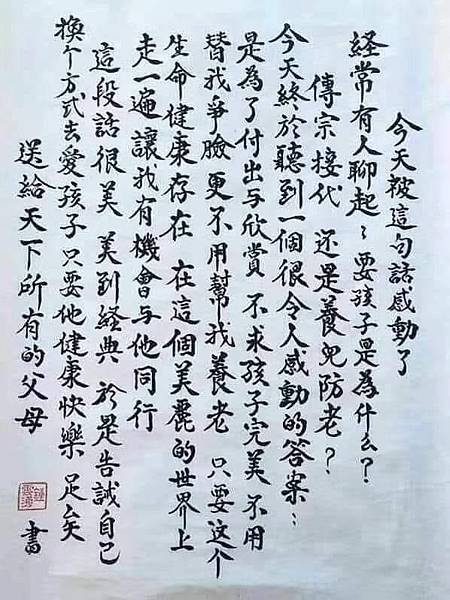 今天被這句話感動了
経常有人聊起：要孩子是為什么？
傳宗接代 还是養兒防老？
今天終於聽到一個很令人感動的答案：
是為了付出与欣賞 不求孩子完美 不用
替我爭臉 更不用幫我養老 只要这个
生命健康存在 在這個美麗的世界上
走一遍 讓我有機會与他同行
這段話很美 美到経典 於是告誡自己
換个方式去愛孩子 只要他健康快樂 足矣
送給天下所有的父母
書